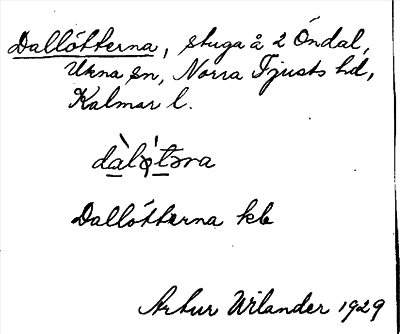 Dallótterna, stuga å 2 Öndal,
Ukna sn, Norra Tjusts hd,
Kalmar l.
Dallótterna kb
Artur Wilander 1929